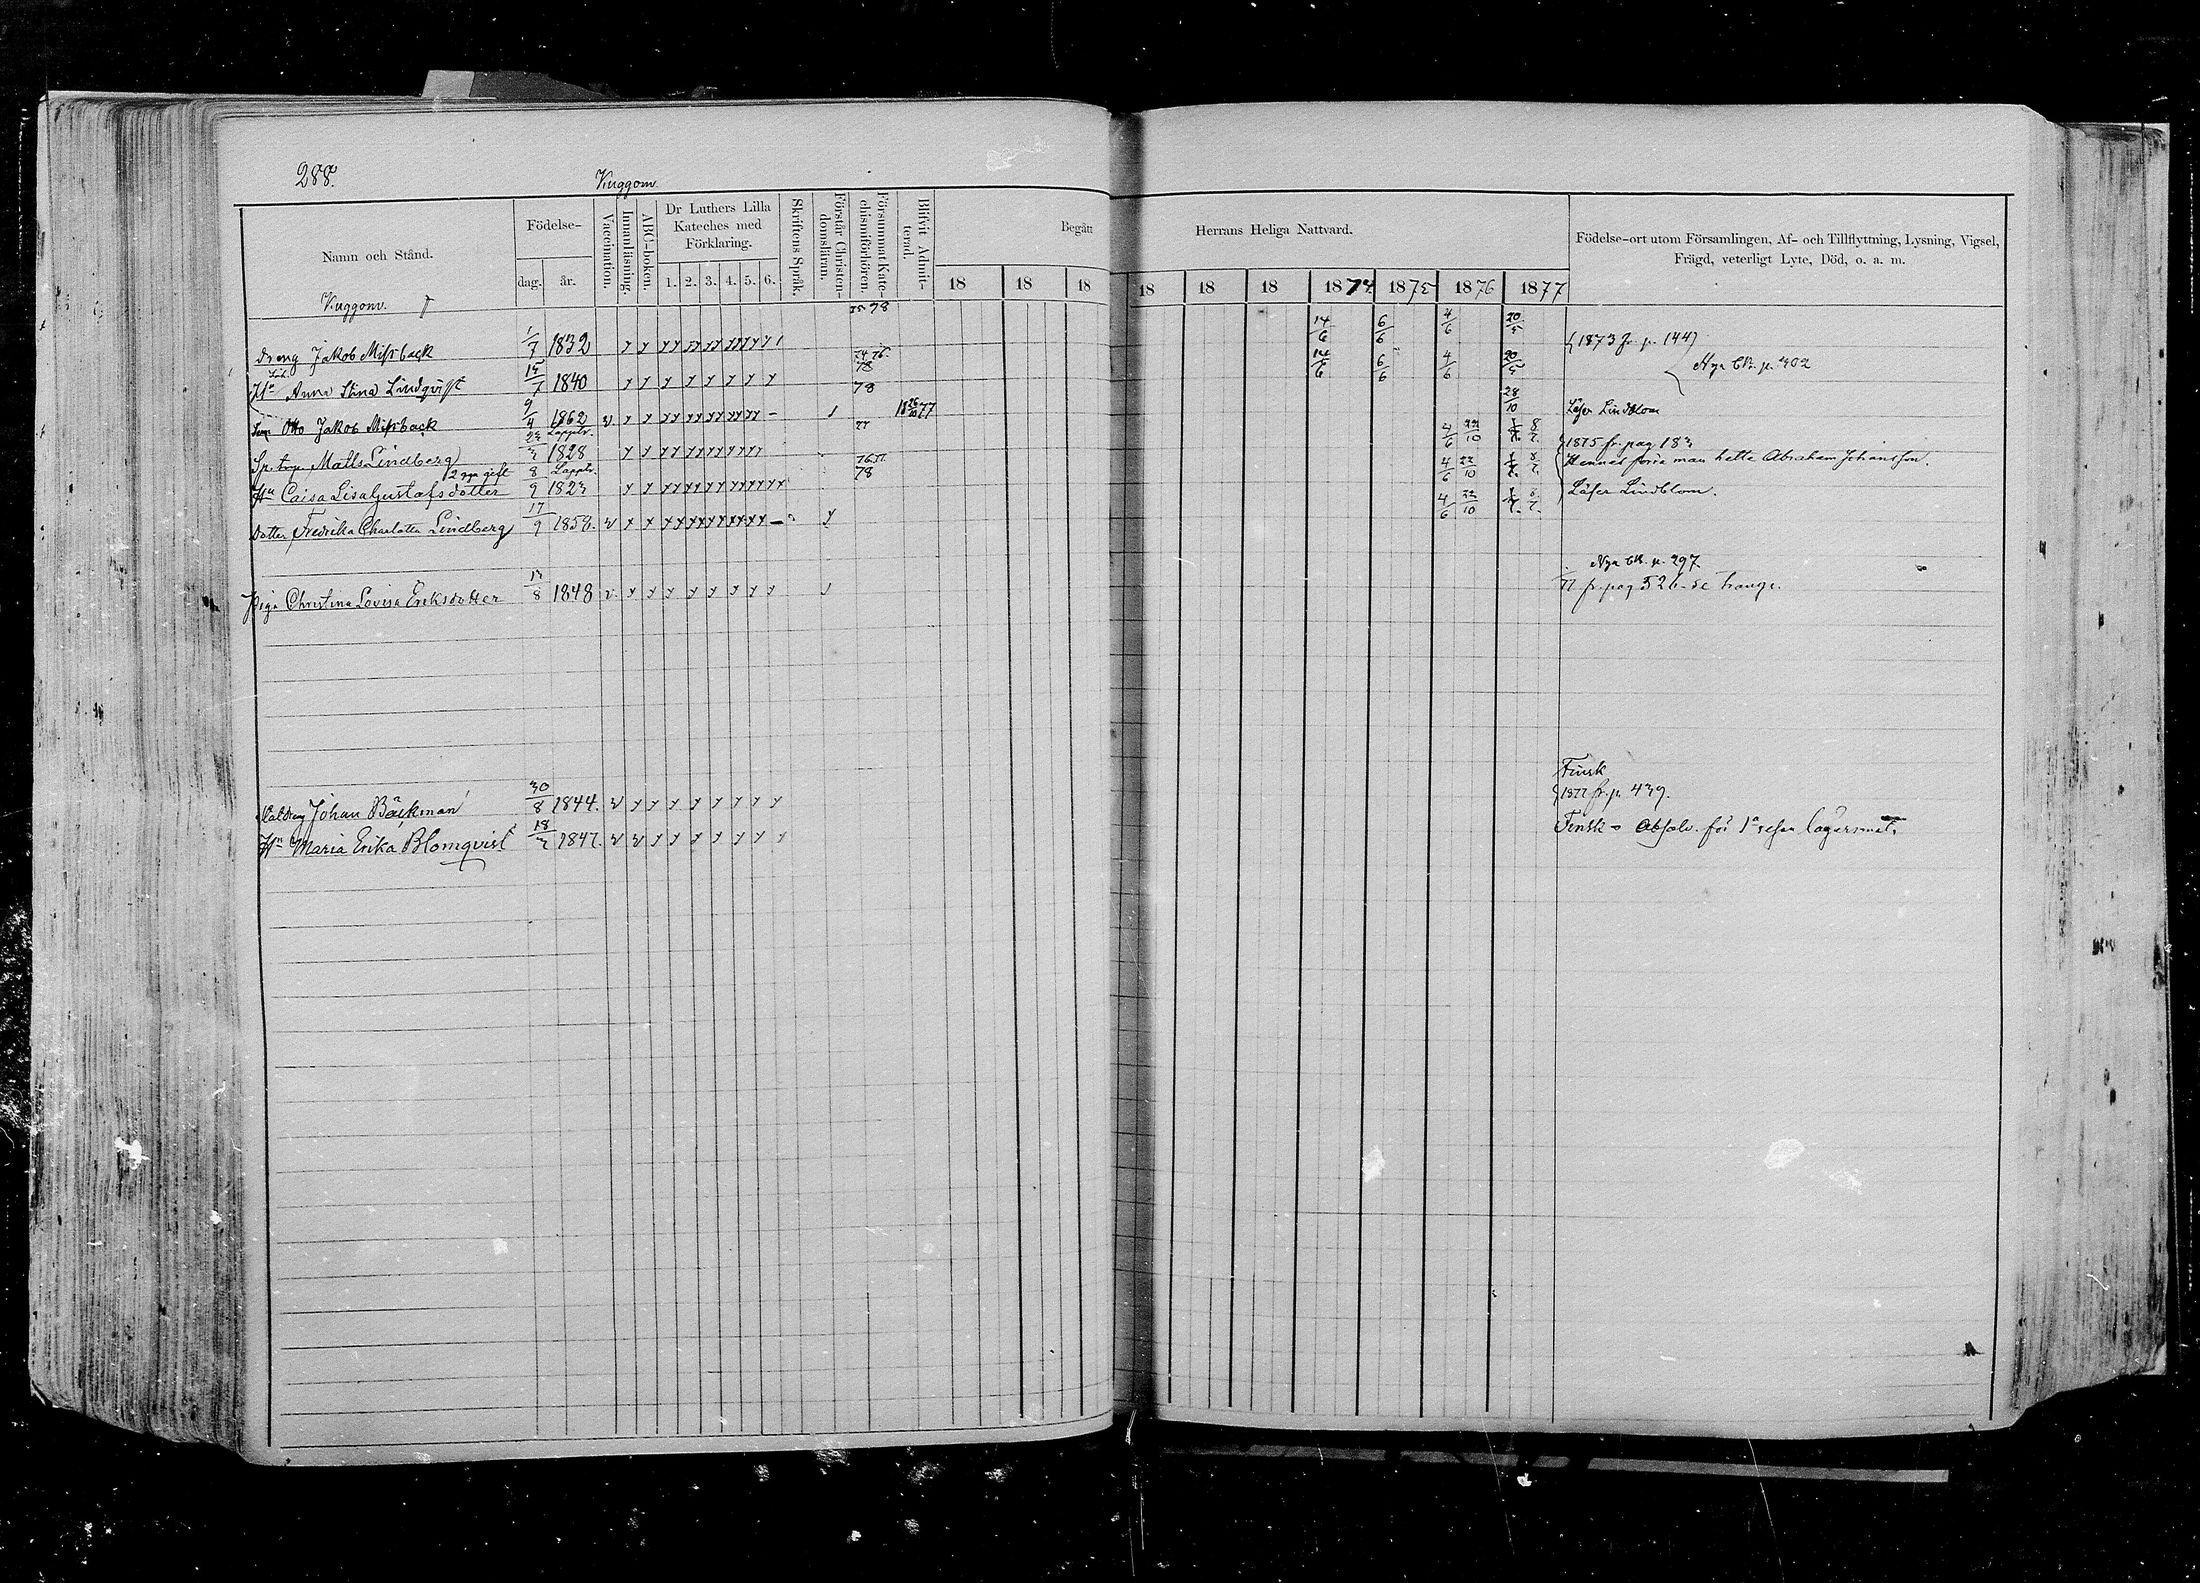 288.
Kuggom
Namn och Stånd.
Födelse-
dag.
år.
Vaccination.
Innanläsning.
ABC-boken.
Dr Luthers Lilla Kateches med Förklaring.
1. 2. 3. 4. 5. 6.
Skriftens Språk.
Förstår Christendomsläran.
Försummat Katechismiförhören.
Blifvit Admitterad.
Begått Herrans Heliga Nattvard.
18 18 18 18 18 18 1874. 1875 1876 1877
Födelse-ort utom Församlingen, Af- och Tillflyttning, Lysning, Vigsel,
Frägd, veterligt Lyte, Död, o. a. m.
Kuggom.
Dreng Jakob Missback 1/7 1832 75 78 14/6 6/6 4/6 20/5 1873 fr. p. 144
Hu Anna Stina Lindqvist 15/7 1840 74 76 78 14/6 6/6 4/6 20/5 Nya CB. p. 302
Son Otto Jakob Missback 9/4 1862 v. 78 28/10 Läser Lindblom
Mats Lindberg Lapptr. 1828 77 4/6 22/10 1875 fr. pag 183
2 gga gift
Hu Caisa Lisa Gustafsdotter Lapptr. 8/9 1823 76 77 78 4/6 22/10 Hennes förra man hette Abraham Johansson.
Dotter Fredrika Charlotta Lindberg 17/9 1858. v 4/6 22/10 Läser Lindblom.
Nya CB. p. 297
Piga Christina Lovisa Eriksdotter 13/8 1848 v. 77 fr. pag 326
Finsk
Johan Bäckman 30/8 1844. v 1877 fr. p. 439.
Hu Maria Erika Blomqvist 18/3 1847. v Finsk Absolv. för 1a resan lägersmål.